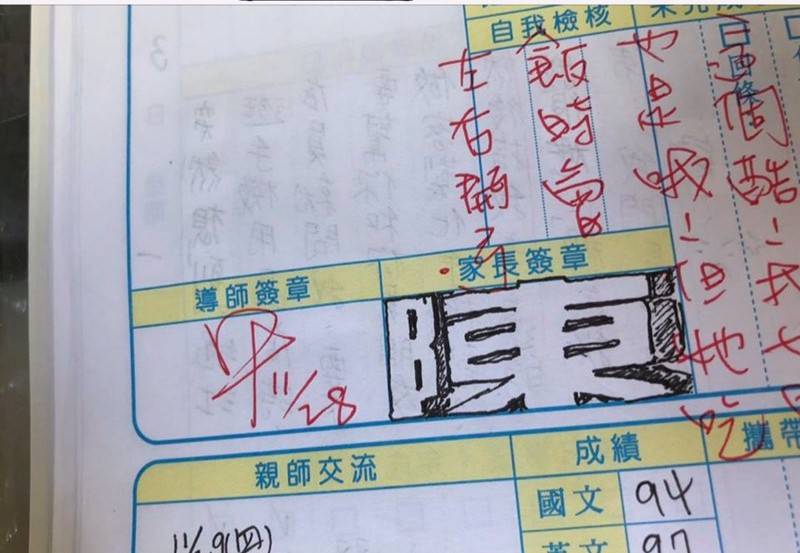 自我檢核
回條
這個酷！我
也是哦！但她吃
飯時會
左右開弓！
導師簽章
家長簽章
11/28
親師交流
成績
攜帶
國文 94
英文 97